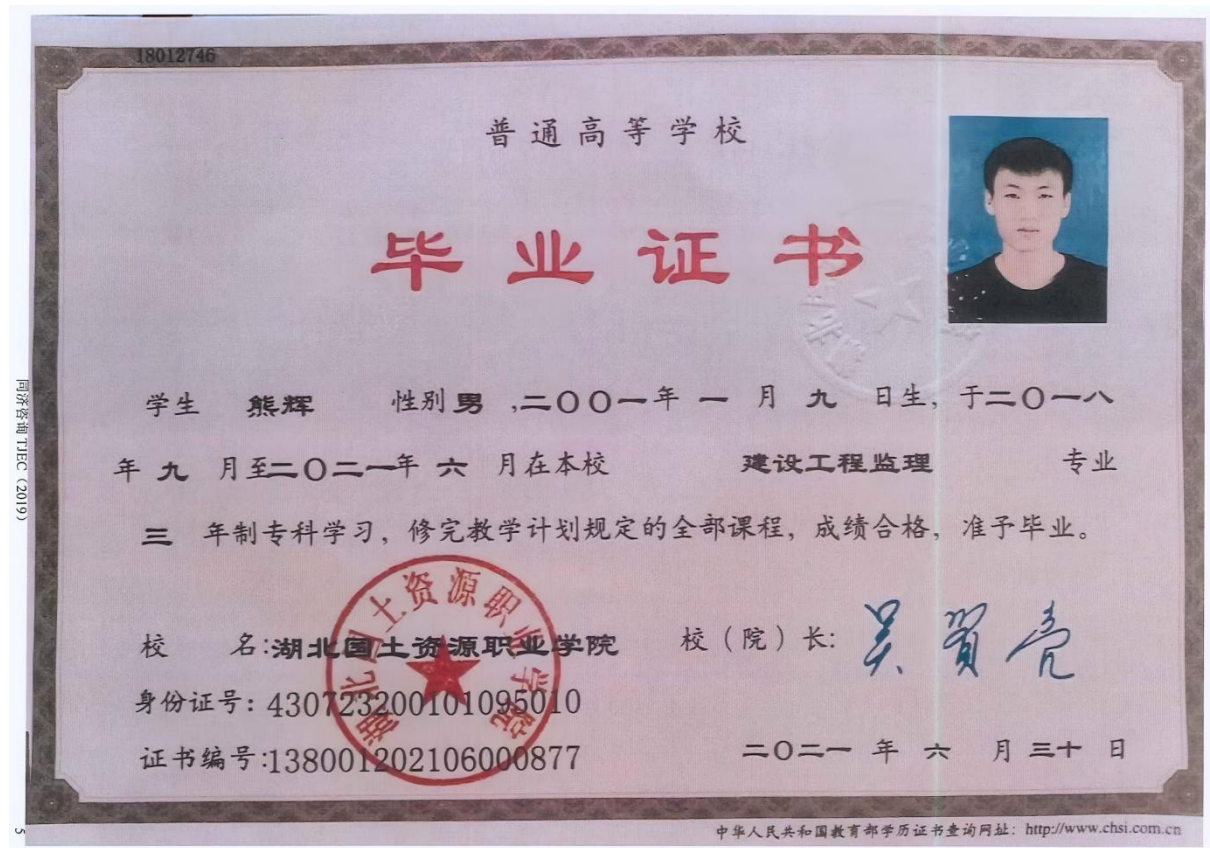 18012746
普通高等学校
毕业证书
学生 熊辉 性别男,二〇〇一年一月九日生,于二〇一八
年九月至二〇二一年六月在本校 建设工程监理 专业
三年制专科学习,修完教学计划规定的全部课程,成绩合格,准予毕业。
校 名:湖北国土资源职业学院 校(院)长:吴贤亮
身份证号:430723200101095010
证书编号:138001202106000877 二〇二一年六月三十日
湖北国土资源职业学院
中华人民共和国教育部学历证书查询网址:http://www.chsi.com.cn
同济咨询 TJEC (2019)
5